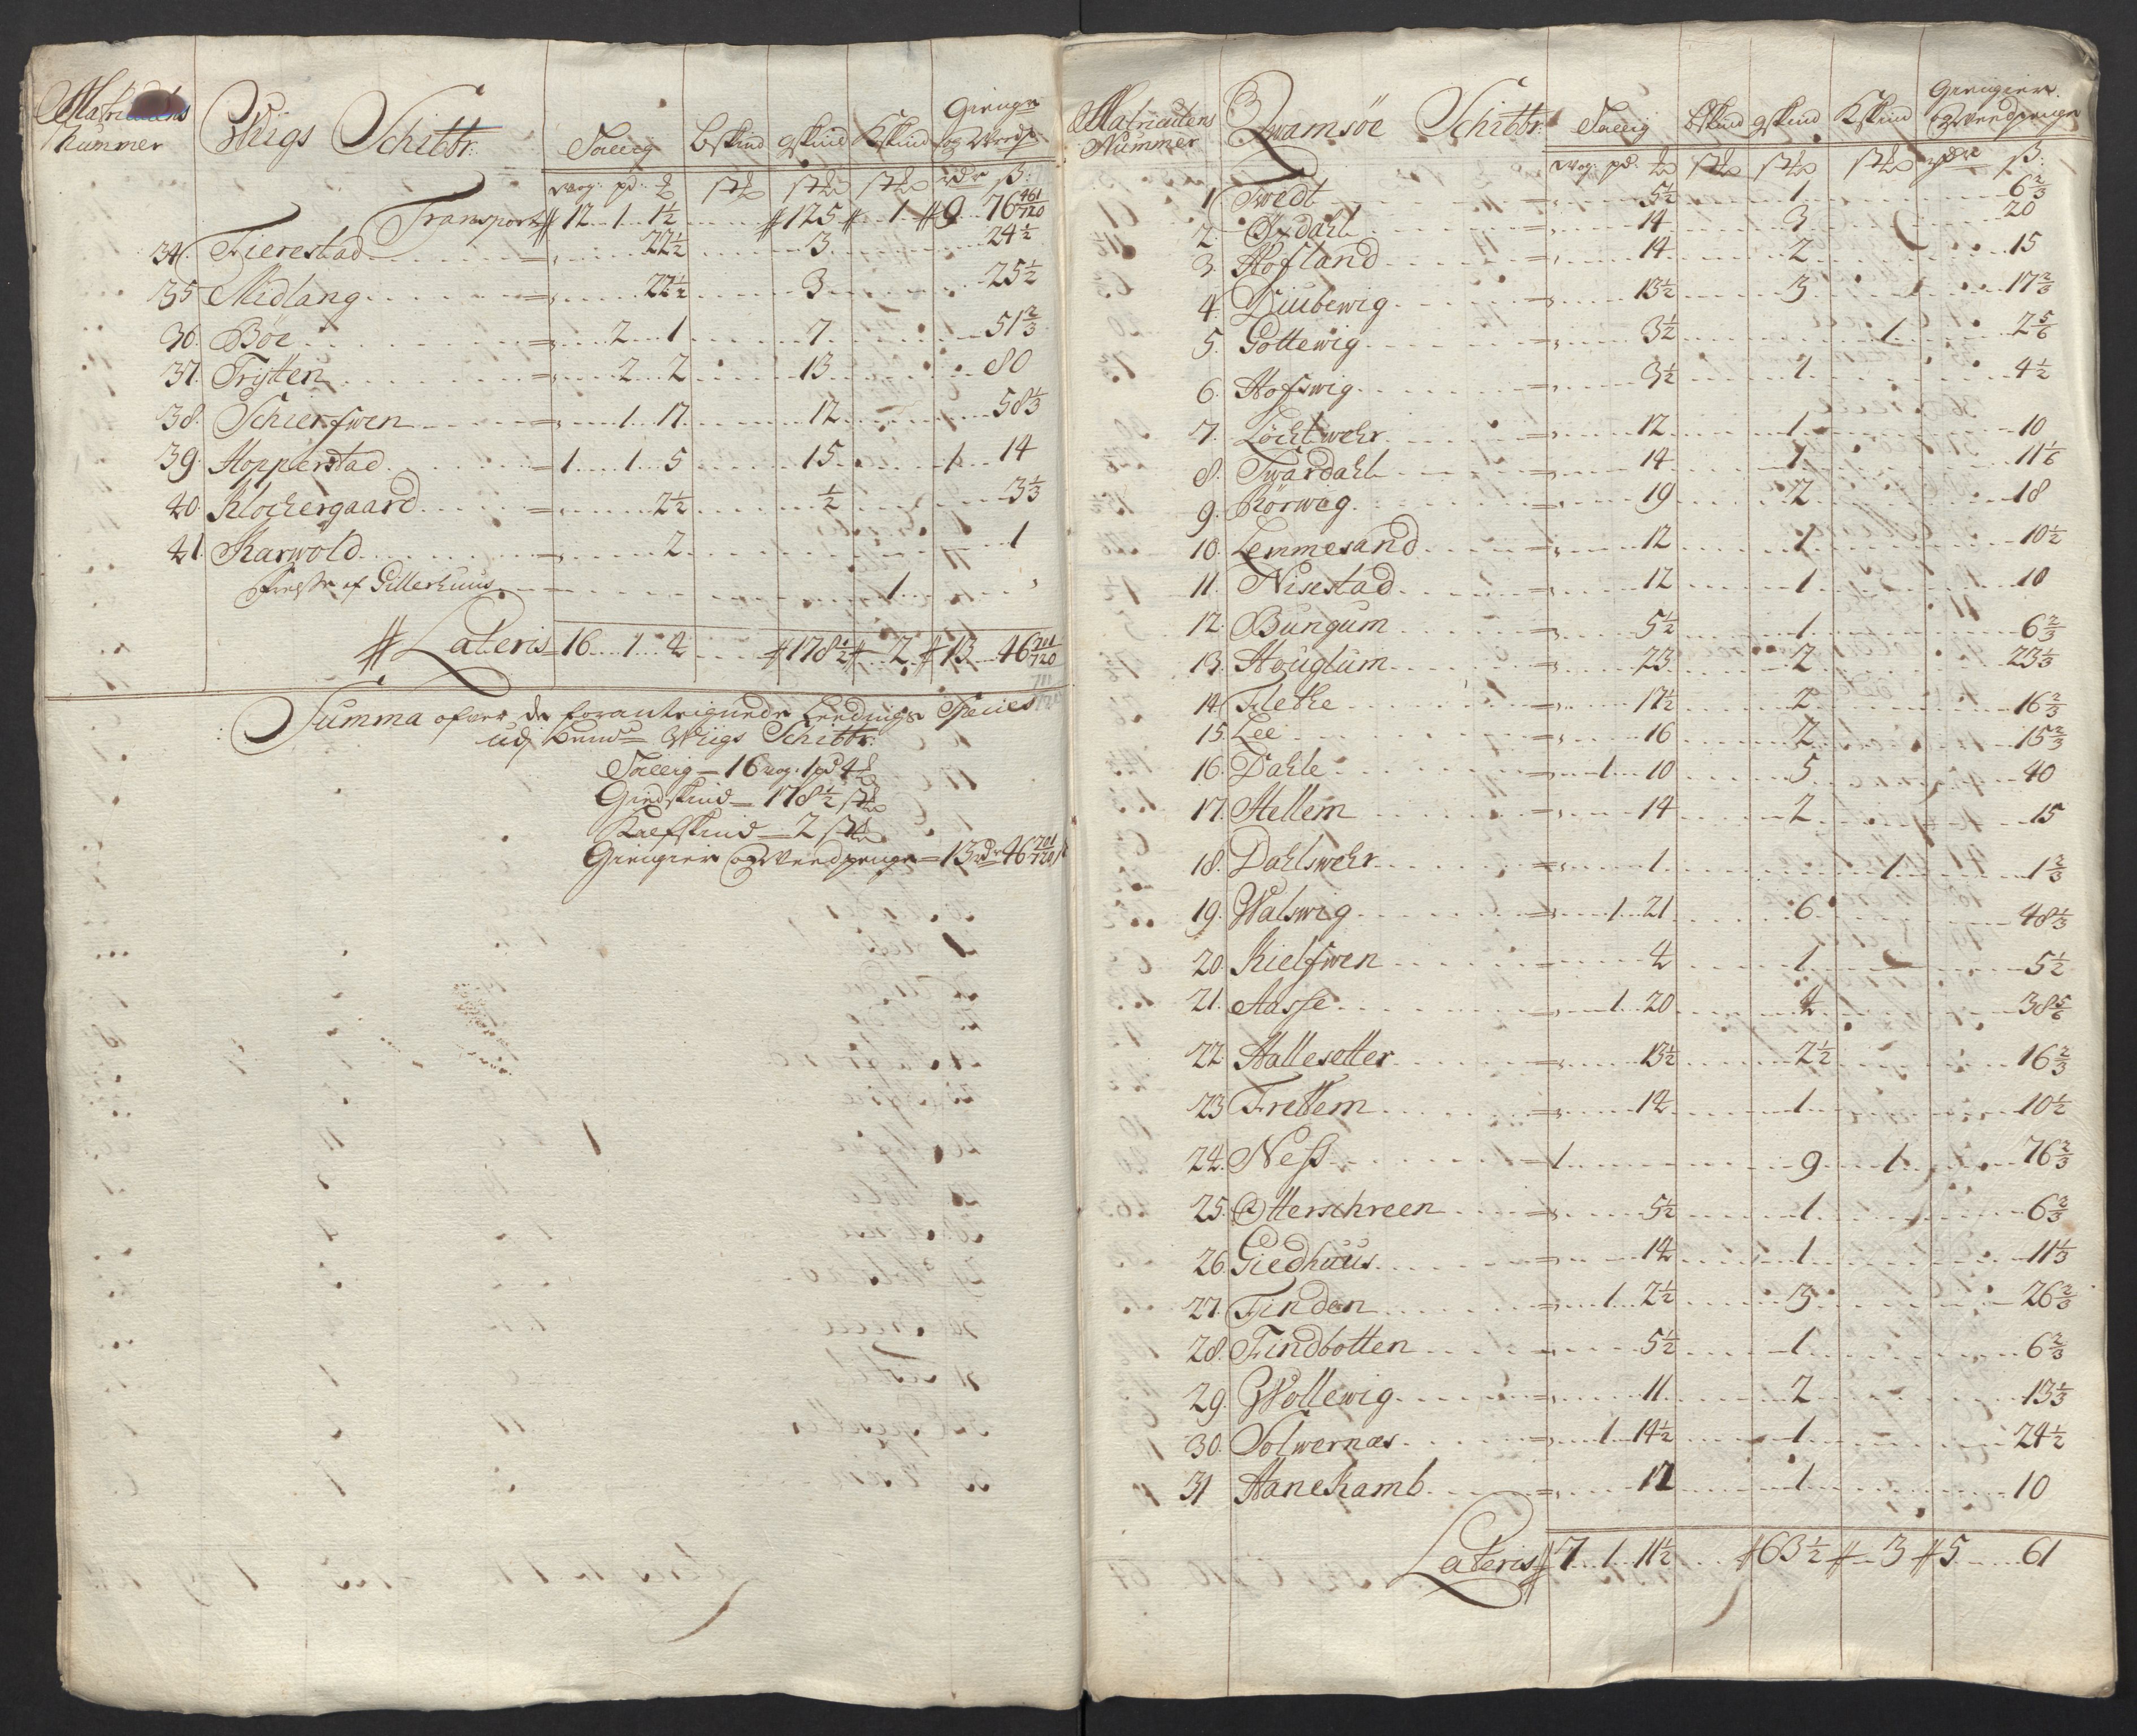 Matriculens Nummer Wigs Schibbr: Talug bskind gskind Kskind Giengr og Wedp
wog: pd: stk stk stk rdr ß:
Transport 12 1 1½ 125 1 9 76 461/720
34. Fierestad 22½ 3 24½
35 Midlang 22½ 3 25½
36. Böe 2 1 7 51⅔
37. Trÿtten 2 2 13 80
38. Schierfwen 1 17 12 58⅓
39. Hopperstad 1 1 5 15 1 14
40. Klochergaard 2½ ½ 3⅓
41. Karwold 2 1
af Gillerhuus 1
Lateris 16 1 4 178½ 2 13 46 701/720
Summa ofver de foranteignede Leedings Species
udj Wigs Schibbr:
Talug 16 wog: 1 pd 4
Giedskind 178½ stk
Kalfskind 2 stk
Giengier og Wedpenge 13 rdr 46 701/720 ß
Matriculens Nummer Qwamsöe Schibbr: Talug bskind gskind Kskind Giengier og Wedpenge
wog: pd: stk stk stk rdr ß:
1 Twedt 5½ 1 6⅔
2. Öxdahl 14 3 20
3. Hofland 14 2 15
4. Diubewig 13½ 3 17⅔
5. Gottewig 3½ 1 2⅚
6. Hofswig 3½ 1 4½
7. Löchtwehr 12 1 10
8. Twärdahl 14 1 11⅙
9. Rörwag 19 2 18
10. Lemmesand 12 1 10½
11. Nisestad 12 1 10
12. Bungum 5½ 1 6⅔
13. Houglum 23 2 23⅓
14. Flethe 17½ 2 16⅔
15. Lee 16 2 15⅔
16. Dahle 1 10 5 40
17. Hellem 14 2 15
18. Dahlswehr 1 1 1⅔
19. Walswig 1 21 6 48⅓
20. Kielfwen 4 1 5½
21. Aasse 1 20 4 38⅚
22. Hallesetter 13½ 2½ 16⅔
23 Frettem 12 1 10½
24. Neß 1 9 1 76⅔
25. Otterschreen 5½ 1 6⅔
26. Giedhuus 14 1 11⅓
27. Finden 1 2½ 3 26⅔
28. Findbotten 5½ 1 6⅔
29. Wollewig 11 2 13⅓
30. Solwernæs 1 14½ 1 24½
31 Hanekamb 12 1 10
Lateris 7 1 11½ 63½ 3 5 61